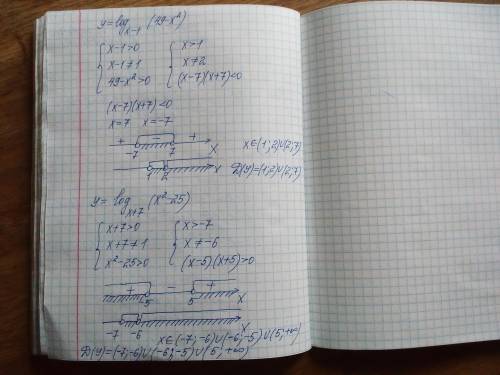 y = log_{x-1} (49-x²)
{ x-1>0 { x>1
x-1≠1 x≠2
49-x²>0 (x-7)(x+7)<0
(x-7)(x+7)<0
x=7 x=-7
+ - +
-7 7 x
x∈(1;2)∪(2;7)
1 2 x
D(y)=(1;2)∪(2;7)
y = log_{x+7} (x²-25)
{ x+7>0 { x>-7
x+7≠1 x≠-6
x²-25>0 (x-5)(x+5)>0
+ - +
-5 5 x
-7 -6 x
x∈(-7;-6)∪(-6;-5)∪(5;+∞)
D(y)=(-7;-6)∪(-6;-5)∪(5;+∞)